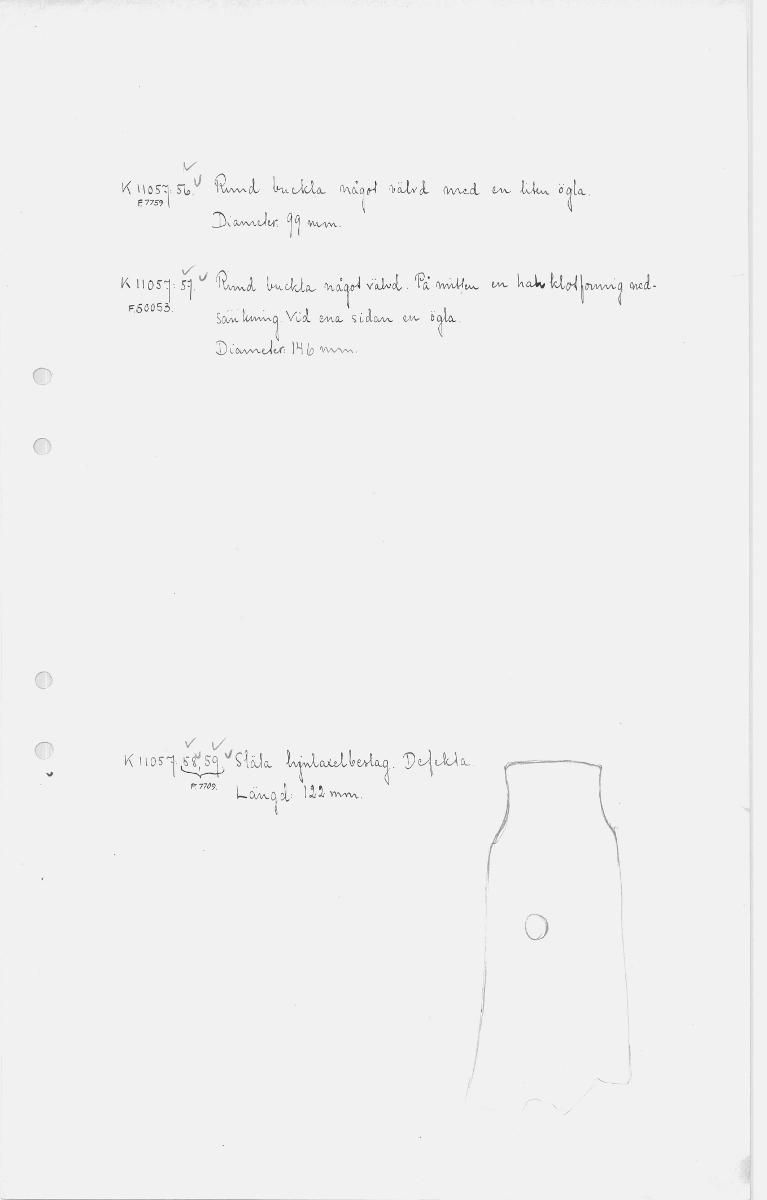 K 11057:56. Rund buckla något välvd med en liten ögla.
F.7759
Diameter: 99 mm.
K 11057:57. Rund buckla något välvd. På mitten en halvklotformig ned-
F.50053.
sänkning. Vid ena sidan en ögla.
Diameter: 146 mm.
K 11057:58,59. Släta hjulaxelbeslag. Defekta.
F.7709.
Längd: 122 mm.